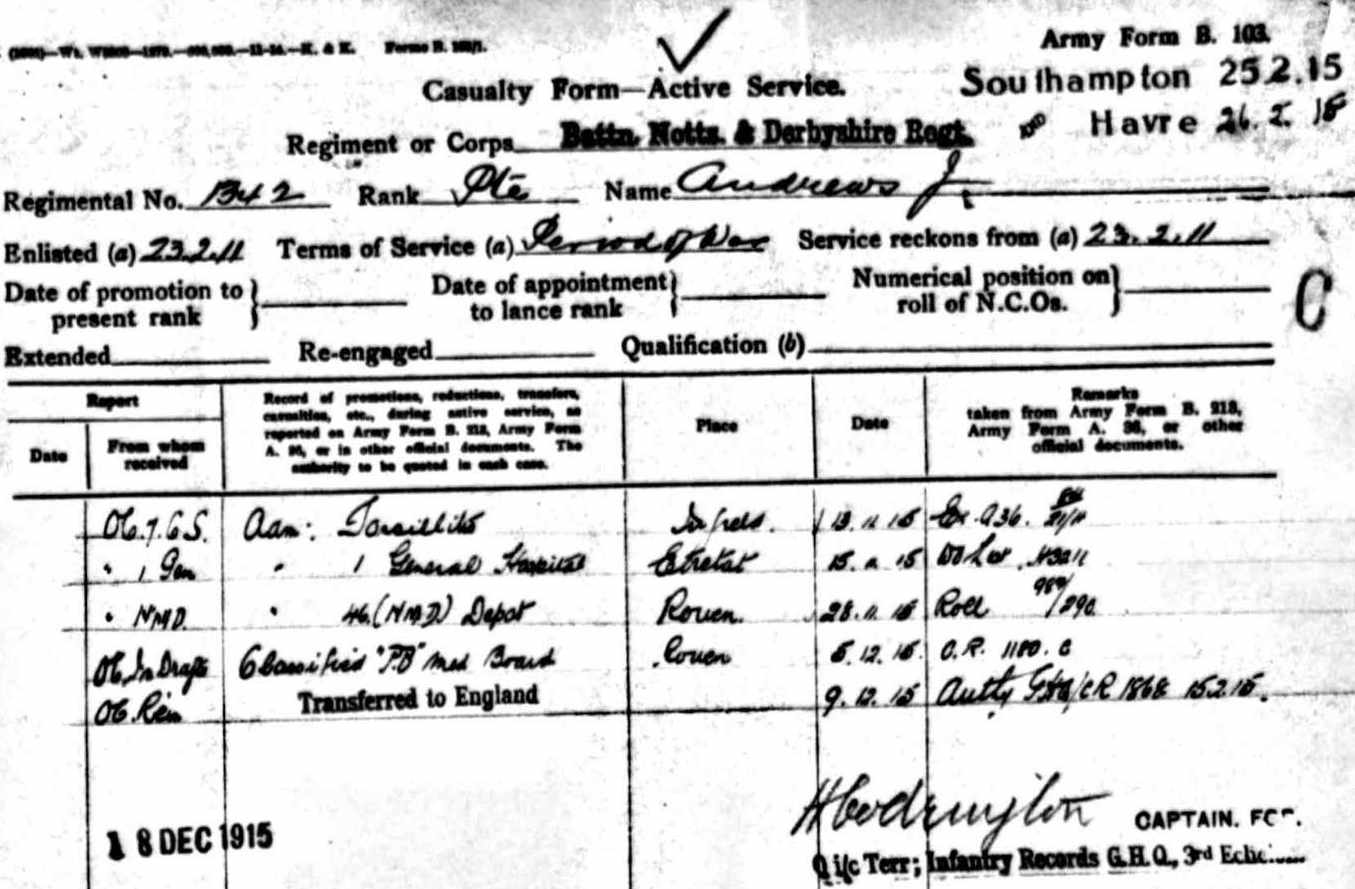 Forms B. 103/1.
Army Form B. 103.
Casualty Form—Active Service.
Southampton 25.2.15
Regiment or Corps Battn. Notts. & Derbyshire Regt.
Havre 26.2.15
Regimental No. 1342 Rank Pte Name Andrews J.
Enlisted (a) 23.2.11 Terms of Service (a) Period of War Service reckons from (a) 23.2.11
Date of promotion to present rank } Date of appointment to lance rank } Numerical position on roll of N.C.Os. }
C
Extended Re-engaged Qualification (b)
Report
Date
From whom received
Record of promotions, reductions, transfers, casualties, etc., during active service, as reported on Army Form B. 213, Army Form A. 36, or in other official documents. The authority to be quoted in each case.
Place
Date
Remarks taken from Army Form B. 213, Army Form A. 36, or other official documents.
Adm: Tonsillitis In field. 13.11.15 A36.
" 1 Gen " 1 General Hospital Etretat 15. 15
" NMD " 46 (NMD) Depot Rouen. 28.11.15 Roll
OC Classified "PB" Med Board Rouen 5.12.15. O.R. 1180. C
OC Rein Transferred to England 9.12.15 Autty CR 1868 15.2.15.
18 DEC 1915
H Codrington CAPTAIN. FOR.
O i/c Terr; Infantry Records G.H.Q., 3rd Echelon